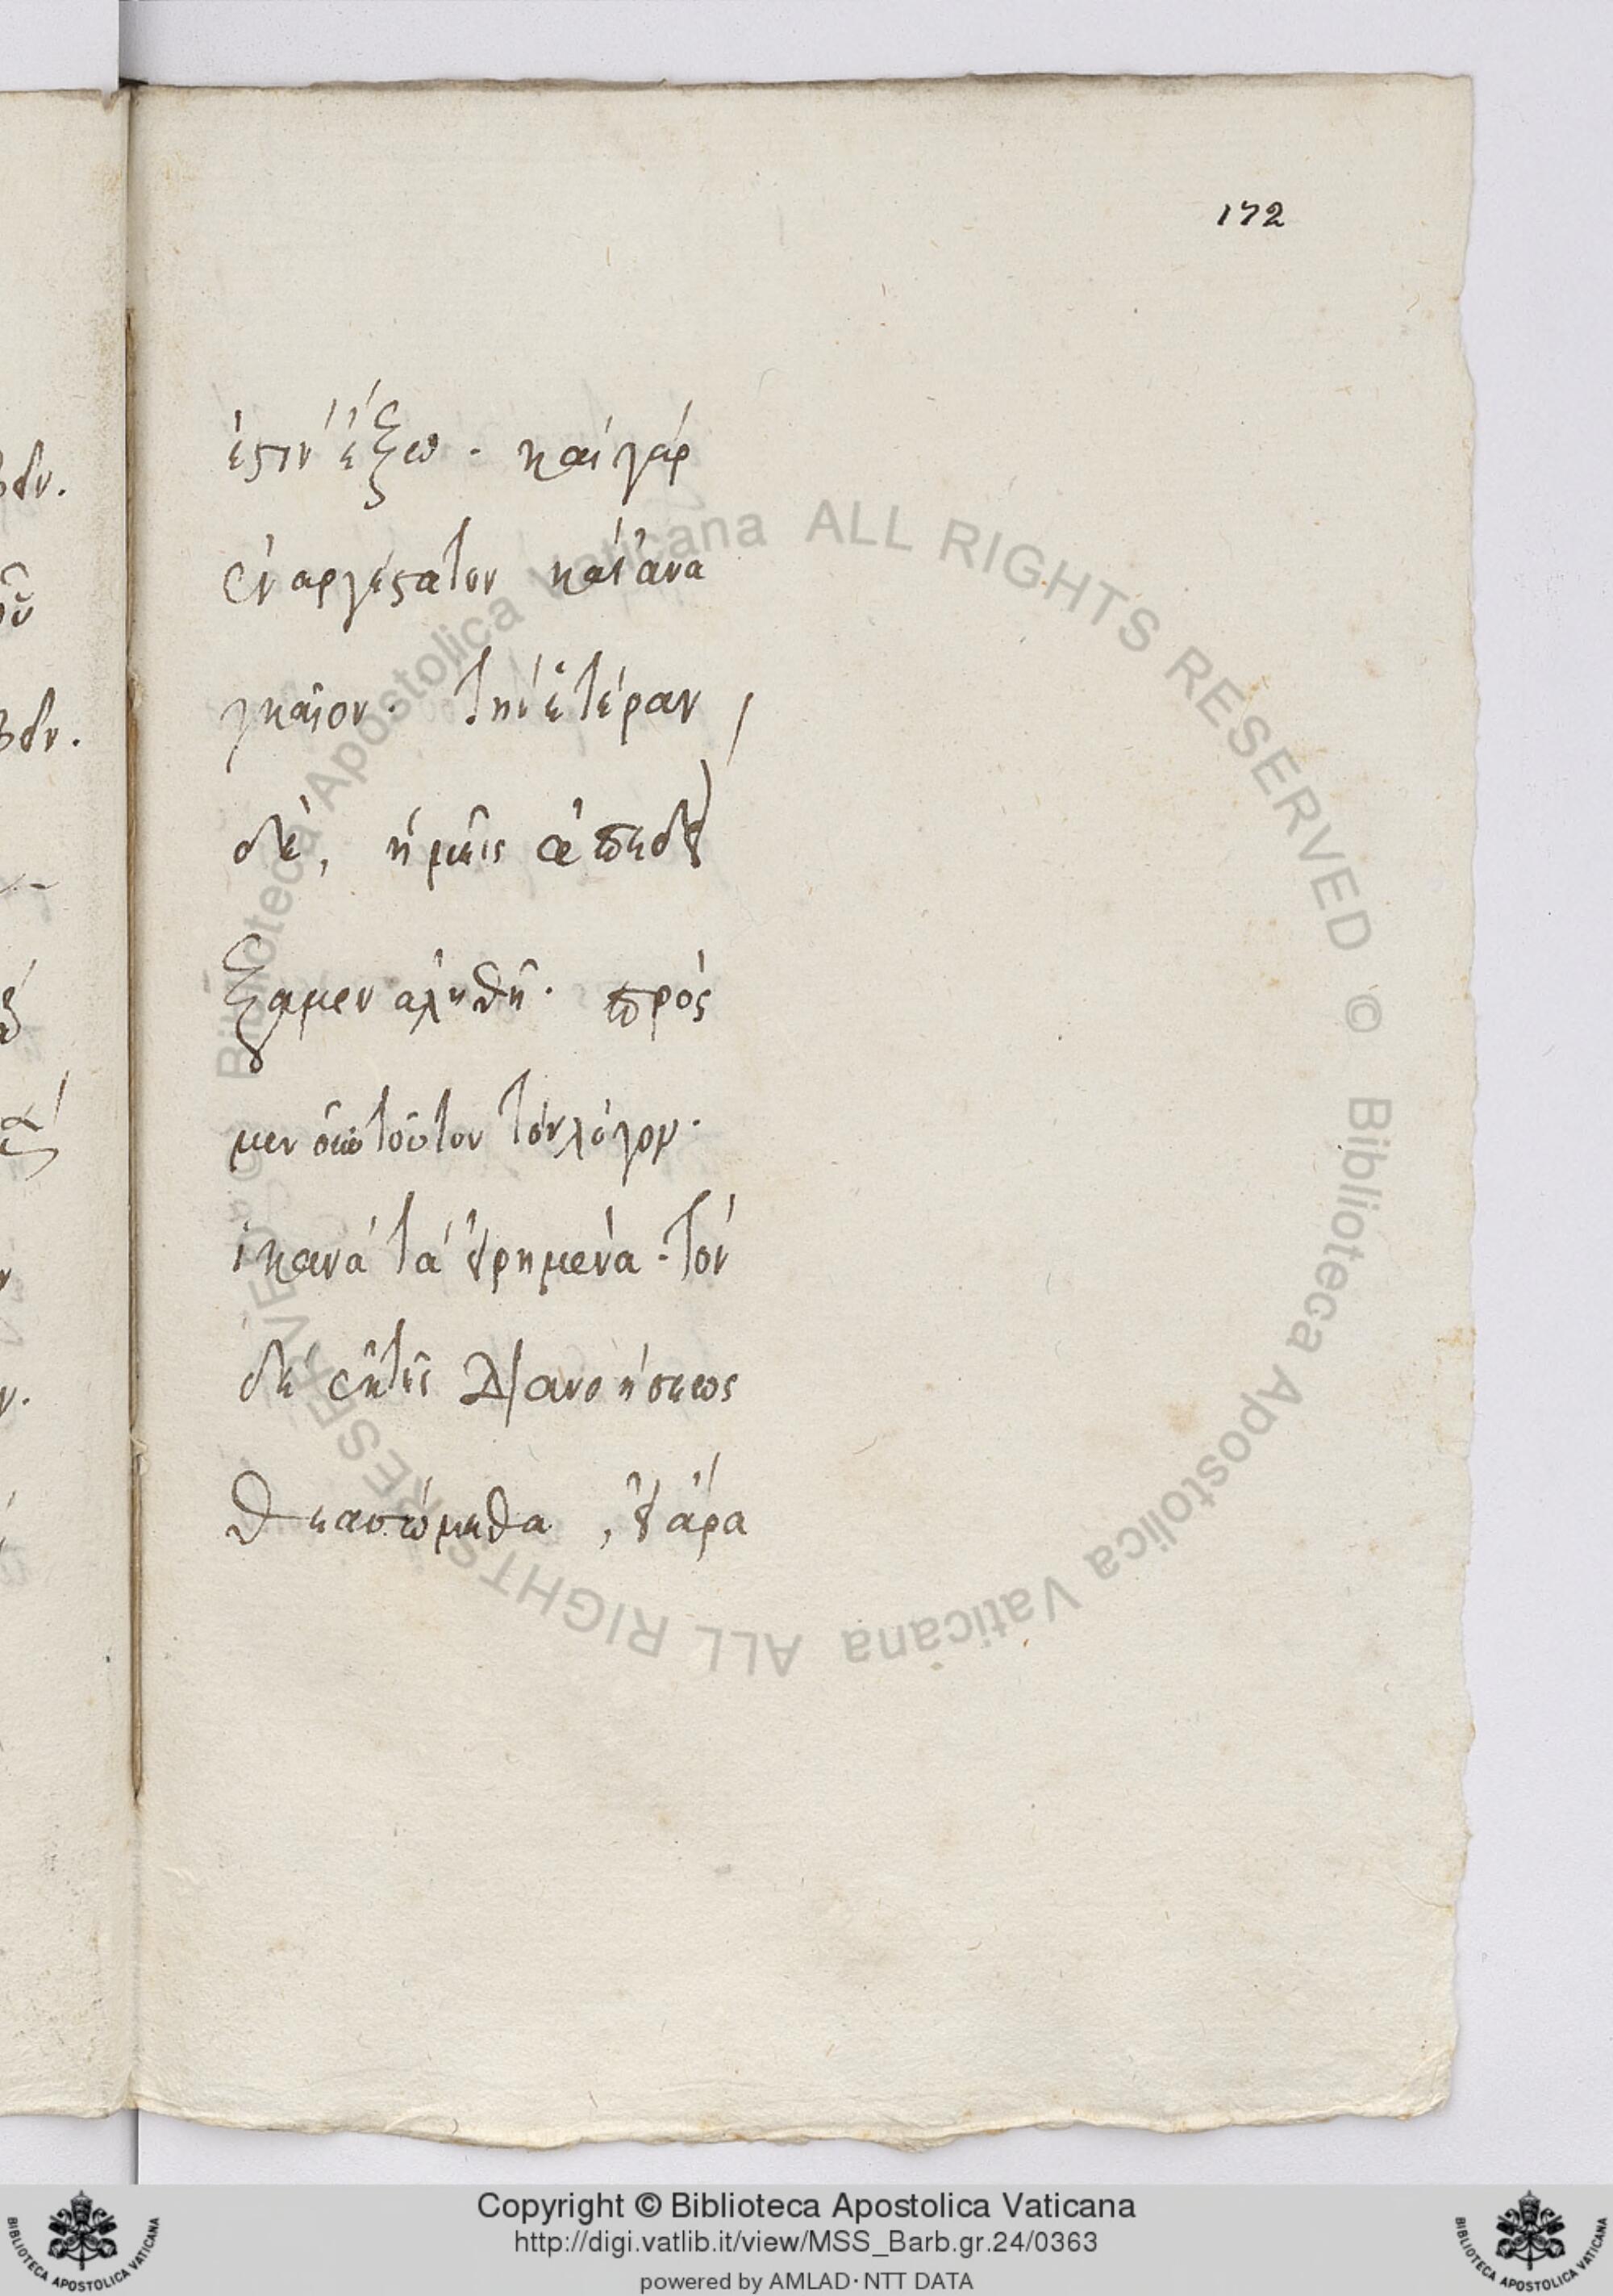 172
ἐστιν ἕξεως . καὶ γὰρ
ἐναργέστατον καὶ ἀνα
γκαῖον . τὴν ἑτέραν
δὲ , ἡμεῖς ἀπεδεί
ξαμεν ἀληθῆ . πρὸς
μὲν οὖν τοῦτον τὸν λόγον .
ἱκανὰ τὰ εἰρημένα . τὸν
δὲ ἐκ τῆς διανοήσεως
θεασώμεθα , εἰ ἄρα
βδν.
οῦ
βδν.
Biblioteca Apostolica Vaticana ALL RIGHTS RESERVED ©
Biblioteca Apostolica Vaticana ALL RIGHTS RESERVED ©
Copyright © Biblioteca Apostolica Vaticana
http://digi.vatlib.it/view/MSS_Barb.gr.24/0363
powered by AMLAD·NTT DATA
BIBLIOTECA APOSTOLICA VATICANA
BIBLIOTECA APOSTOLICA VATICANA